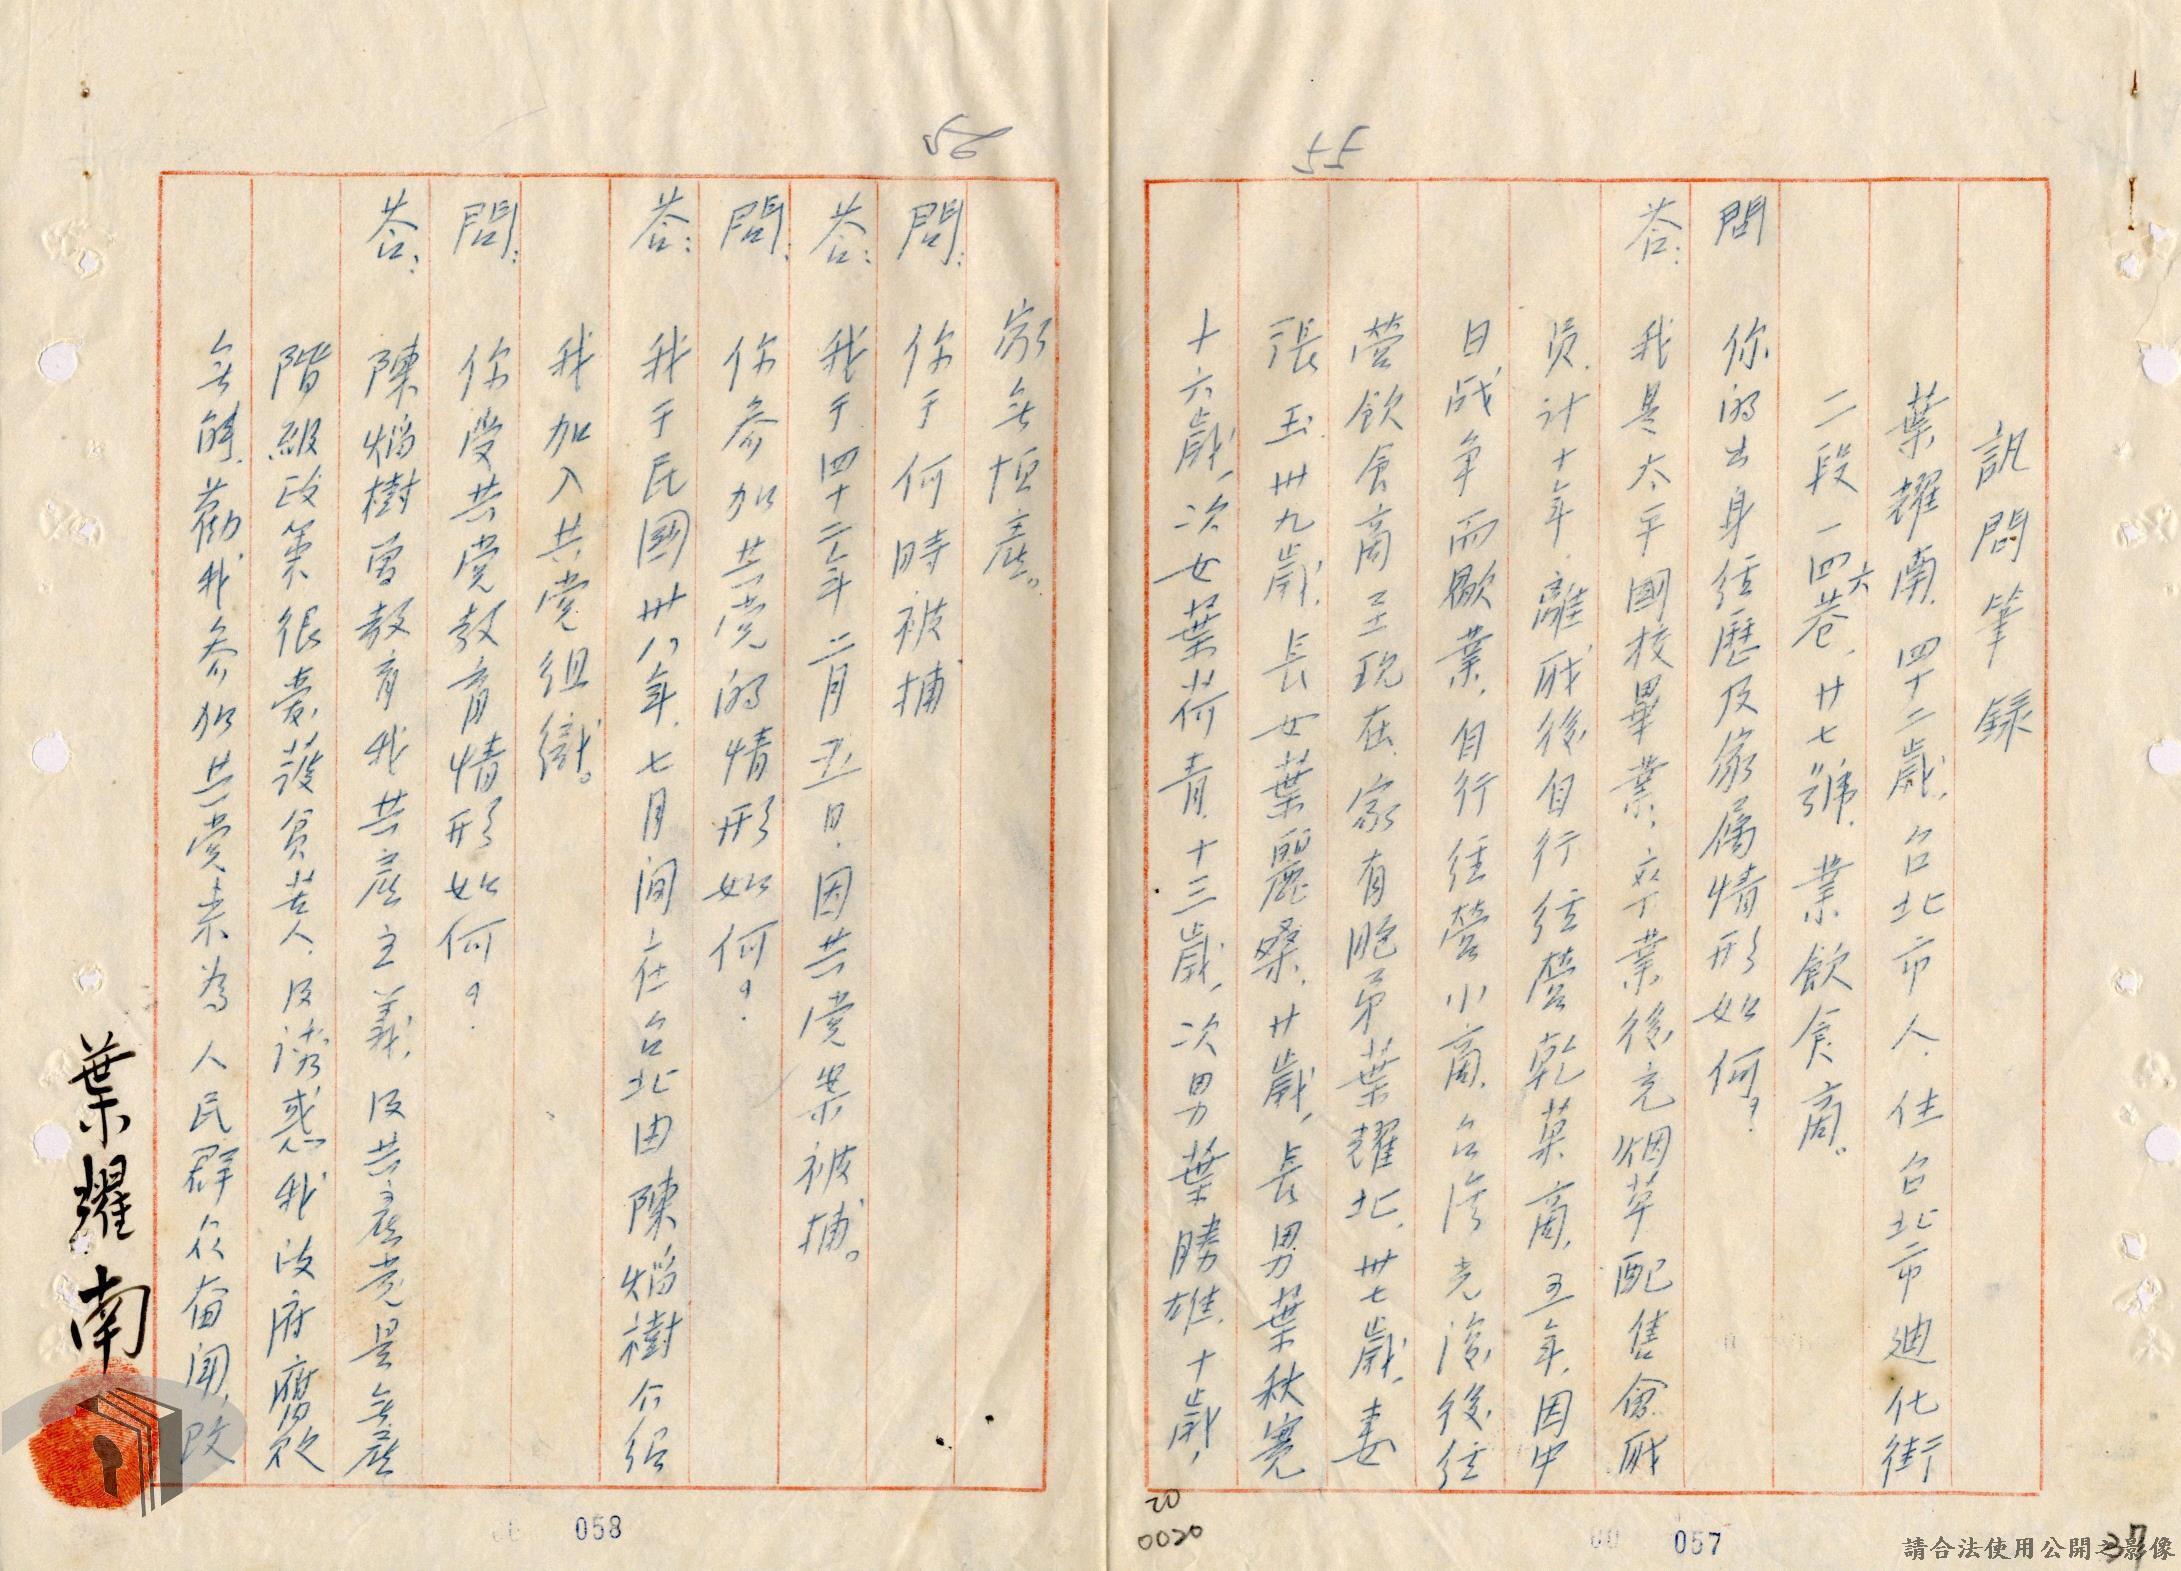 55
訊問筆録
葉耀南．四十二歲，台北市人．住台北市迪化街
二段一四六巷，廿七號．業飲食商。
問　你的出身經歷及家屬情形如何？
答：我是太平國校畢業，卒業後充烟草配售會職
員．計十年．離職後自行經營乾菓商，五年．因中
日战争而歇業，自行經營小商，台湾光復後經
營飲食商至現在．家有胞弟葉耀北．卅七歲，妻
張玉．卅九歲．長女葉麗桑．廿歲，長男葉秋寬
十六歲，次女葉荷青．十三歲，次男葉勝雄．十歲，
56
家無恒產。
問：你于何時被捕
答：我于四十二年二月五日．因共党案被捕。
問：你参加共党的情形如何？
答：我于民國卅八年．七月间在台北由陳焰樹介紹
我加入共党组織。
問：你受共党教育情形如何？
答：陳焰樹曾教育我共产主義，及共产党是無产
階級政策很愛護貧苦人．及誘惑我政府腐敗
無能．勸我参加共党来為人民群众奋闻，改
葉耀南
058
057
20
0020
37
請合法使用公開之影像